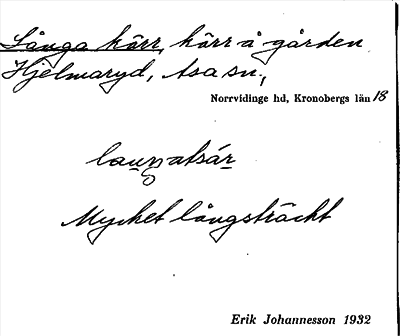 Långa kärr, kärr å gården
Hjelmaryd, Asa sn.,
Norrvidinge hd, Kronobergs län 18
Mycket långsträckt
Erik Johannesson 1932